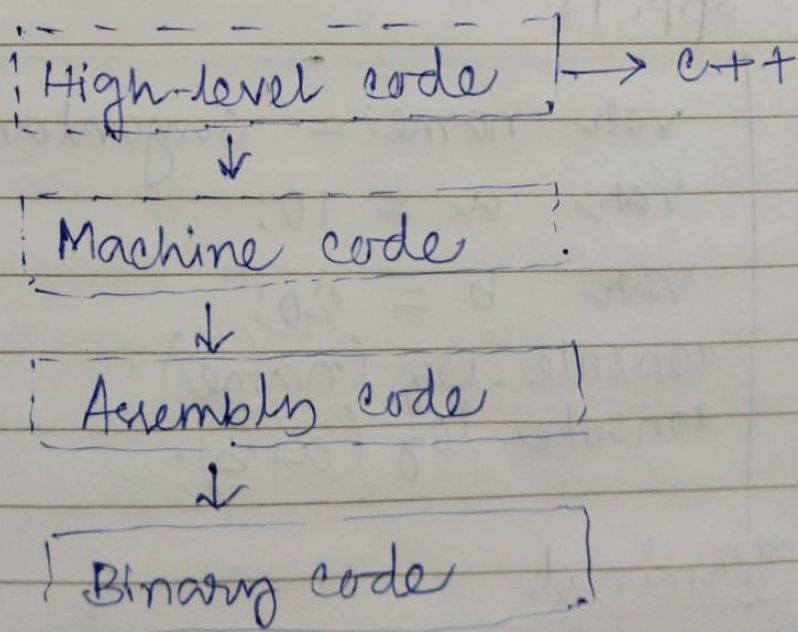 High-level code → C++
↓
Machine code
↓
Assembly code
↓
Binary code